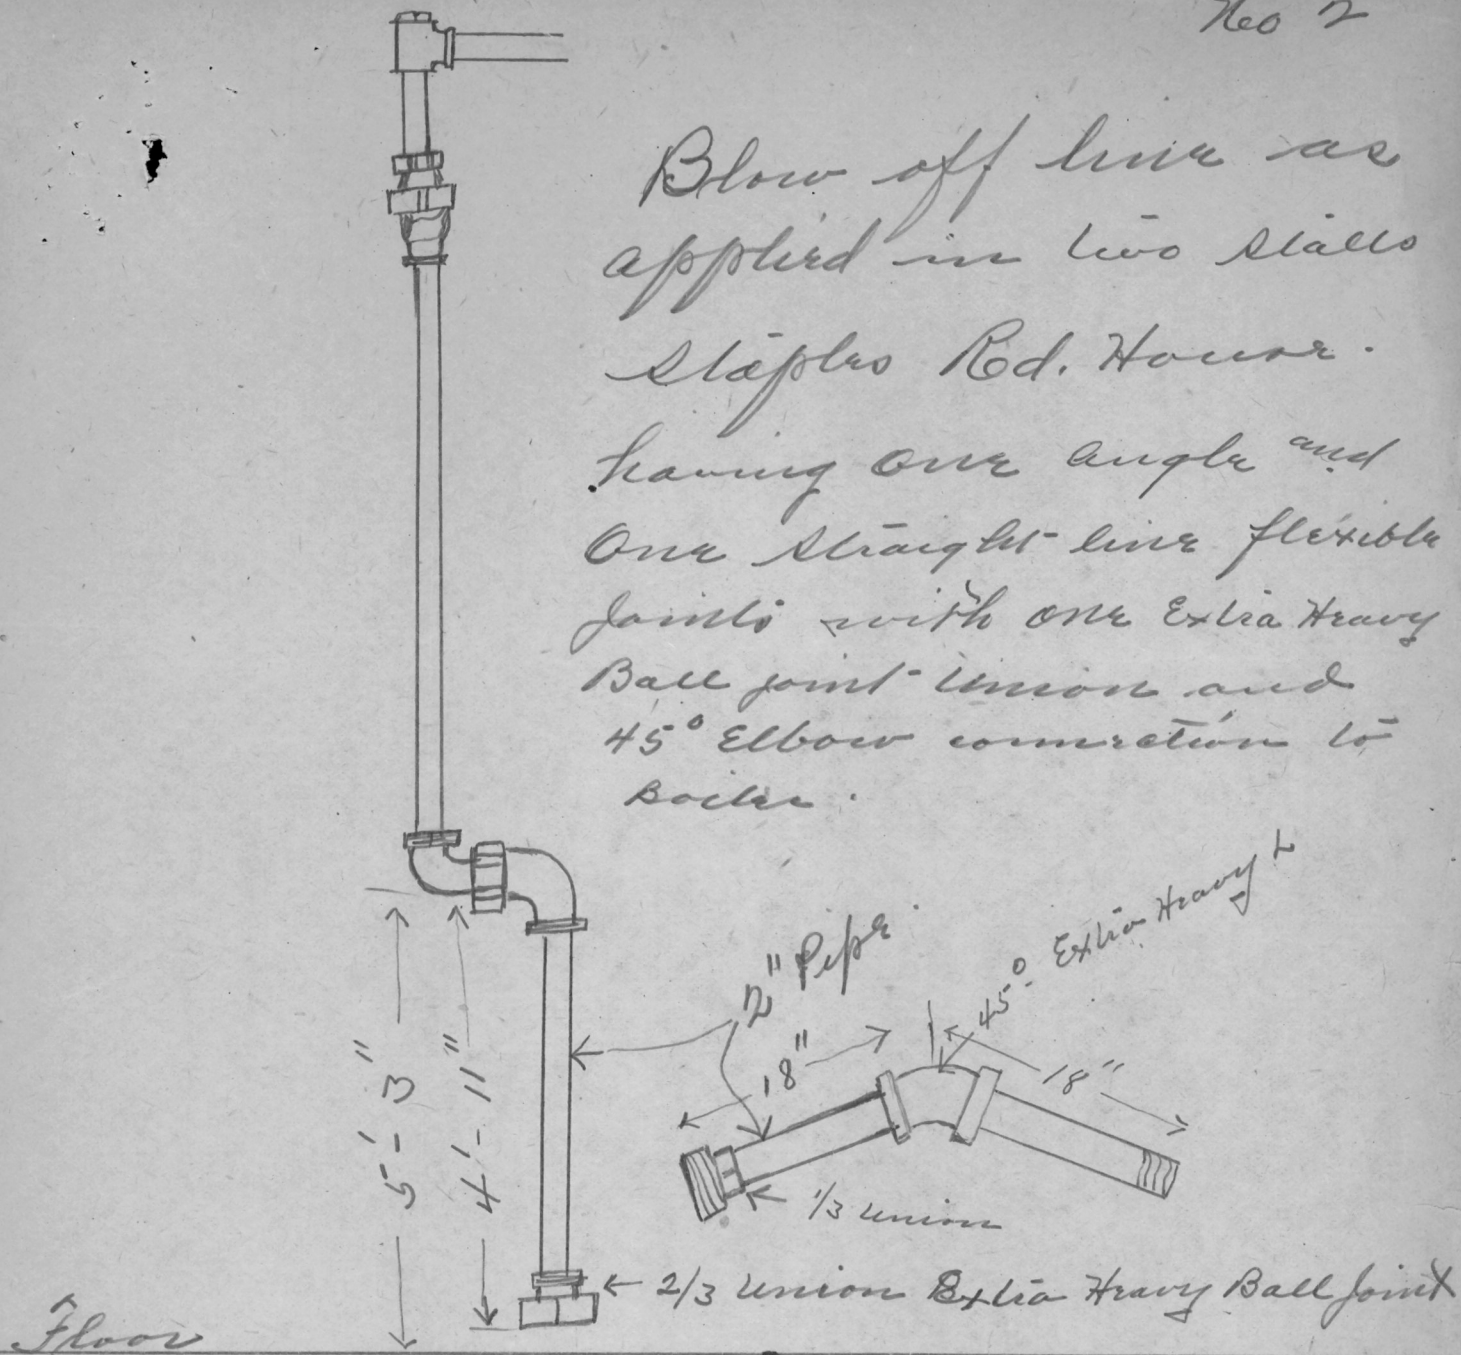 No 2
Blow off line as
applied in two stalls
Staples Rd. House.
having one angle and
One straight line flexible
Joints with one Extra Heavy
Ball joint Union and
45° Elbow connection to
Boiler.
45° Extra Heavy L
2" Pipe
18"
18"
5'-3"
4'-11"
1/3 Union
2/3 Union Extra Heavy Ball Joint
Floor